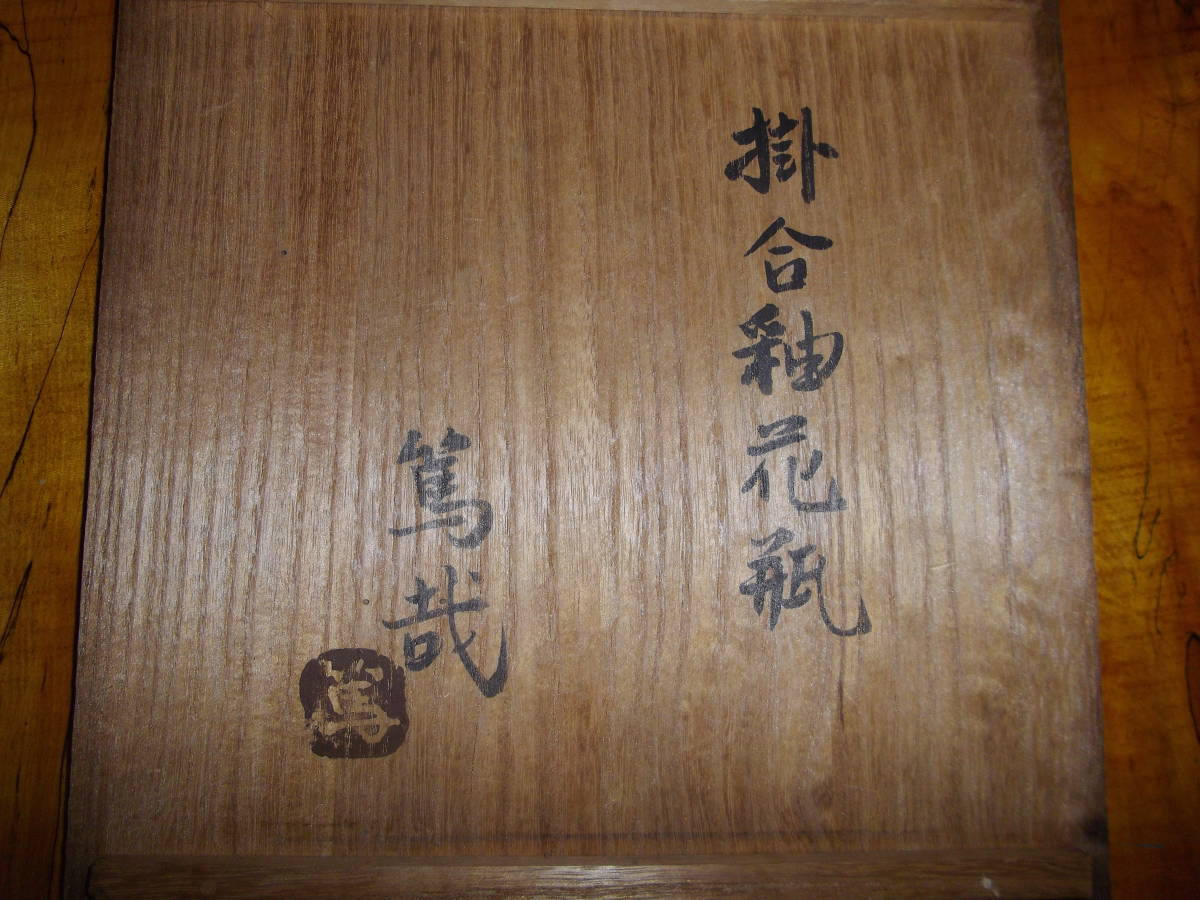 掛合釉花瓶
篤哉
篤